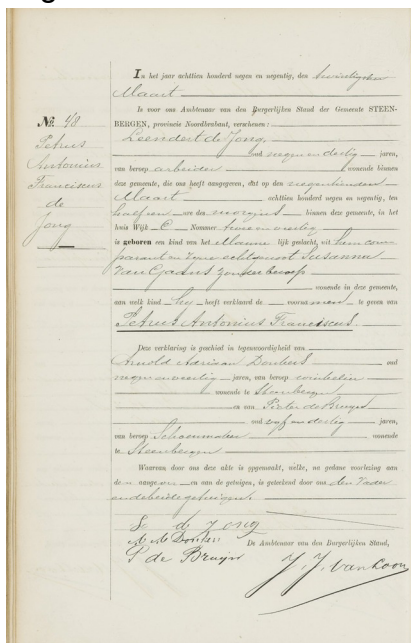 In het jaar achttien honderd negen en negentig, den twintigsten
Maart
Is voor ons Ambtenaar van den Burgerlijken Stand der Gemeente STEEN-
BERGEN, provincie Noordbrabant, verschenen:
Leendert de Jong,
oud negen en dertig jaren,
van beroep arbeider wonende binnen
deze gemeente, die ons heeft aangegeven, dat op den negentienden
Maart achttien honderd negen en negentig, ten
half een ure des morgens binnen deze gemeente, in het
huis Wijk C Nommer twee en veertig
is geboren een kind van het Manne lijk geslacht, uit hem com-
parant en zijne echtgenoot Susanna
van Gaans zonder beroep
wonende in deze gemeente,
aan welk kind hij heeft verklaard de voornamen te geven van
Petrus Antonius Franciscus.
Deze verklaring is geschied in tegenwoordigheid van
Arnold Adriaan Donkers oud
negen en veertig jaren, van beroep winkelier
wonende te Steenbergen
en van Pieter de Bruijn
oud vijf en dertig jaren,
van beroep Schoenmaker wonende
te Steenbergen
Waarvan door ons deze akte is opgemaakt, welke, na gedane voorlezing aan
den aangever en aan de getuigen, is geteekend door ons den Vader
en de beide getuigen.
No. 48
Petrus
Antonius
Franciscus
de
Jong
L de Jong
Donkers
P de Bruijn
De Ambtenaar van den Burgerlijken Stand,
J. J. van Loon